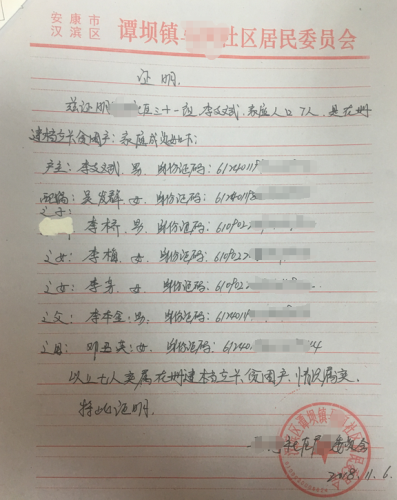 安康市
汉滨区 谭坝镇 社区居民委员会
证明
兹证明 区三十一应，李文斌，家庭人口7人，是在册
建档立卡贫困户：家庭成员如下：
户主：李文斌，男，身份证码：6124011
配偶：吴发群，女，身份证码：6124011
之子：李桥，男，身份证码：610902
之女：李梅，女，身份证码：610922
之女：李 女，身份证码：610922
之父：李本全，男，身份证码：612401
之母：邓丑英：女，身份证码：61240 4
以上七人実属在册建档立卡贫困户、情况属実
特此证明。
社区居 委员会
2018.11.6.